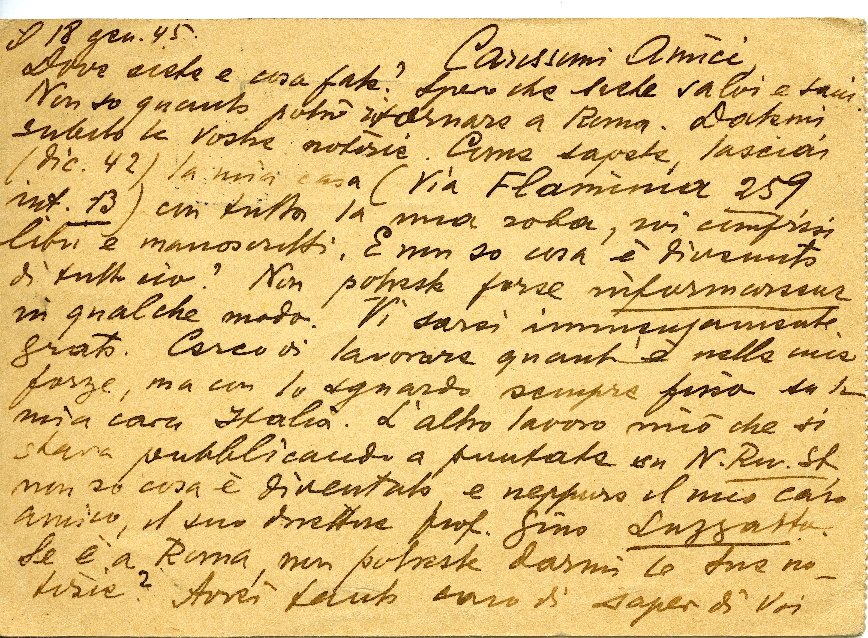 18 gen. 45.
Carissimi Amici,
Dove siete e cosa fate? Spero che siete salvi e sani.
Non so quanto potrò ritornare a Roma. Datemi
subito le vostre notizie. Come sapete, lasciai
(dic. 42) la mia casa (Via Flaminia 259
int. 13) con tutta la mia roba, ivi compresi
libri e manoscritti. E non so cosa è divenuto
di tutto ciò? Non potreste forse informarvene
in qualche modo. Vi sarei immensamente
grato. Cerco di lavorare quant'è nelle mie
forze, ma con lo sguardo sempre fisso su la
mia cara Italia. L'altro lavoro mio che si
stava pubblicando a puntate su N. Riv. St.
non so cosa è diventato e neppure il mio caro
amico, il suo direttore prof. Gino Luzzatto.
Se è a Roma, non potreste darmi le sue no-
tizie? Avrei tanto caro di saper di Voi